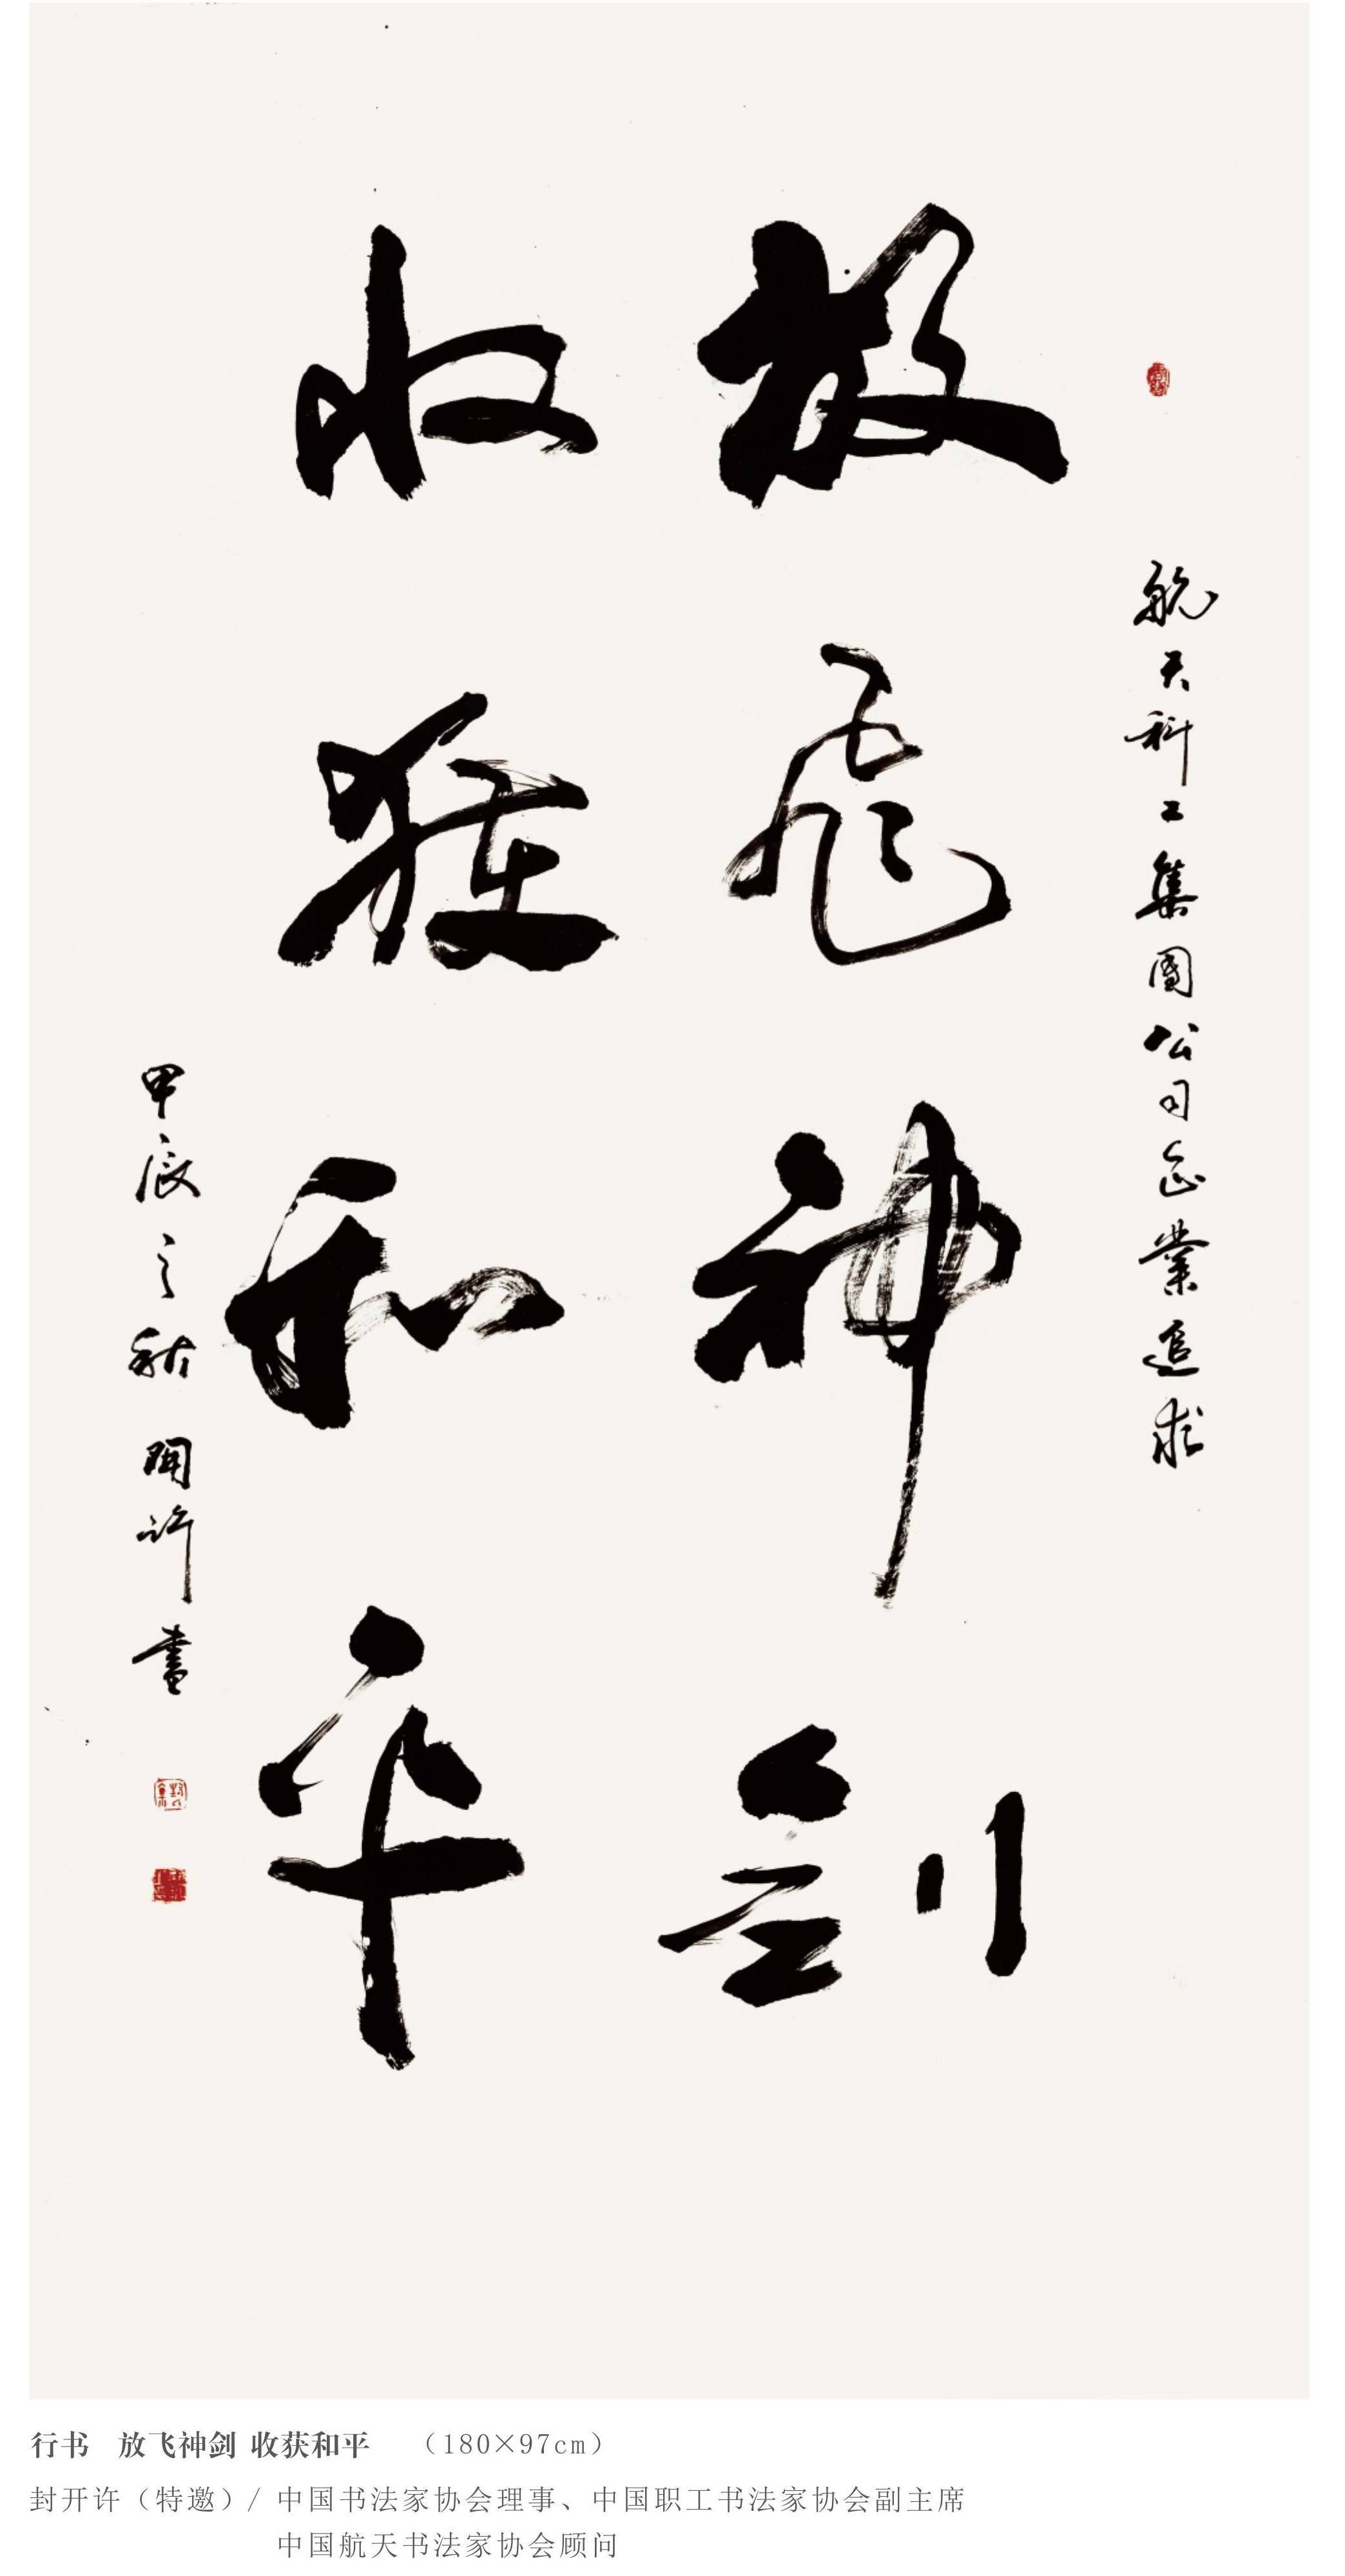 航天科工集團公司企業追求
放飛神劍
收穫和平
甲辰之秋 開許書
行书 放飞神剑 收获和平 （180×97cm）
封开许（特邀）/ 中国书法家协会理事、中国职工书法家协会副主席
中国航天书法家协会顾问